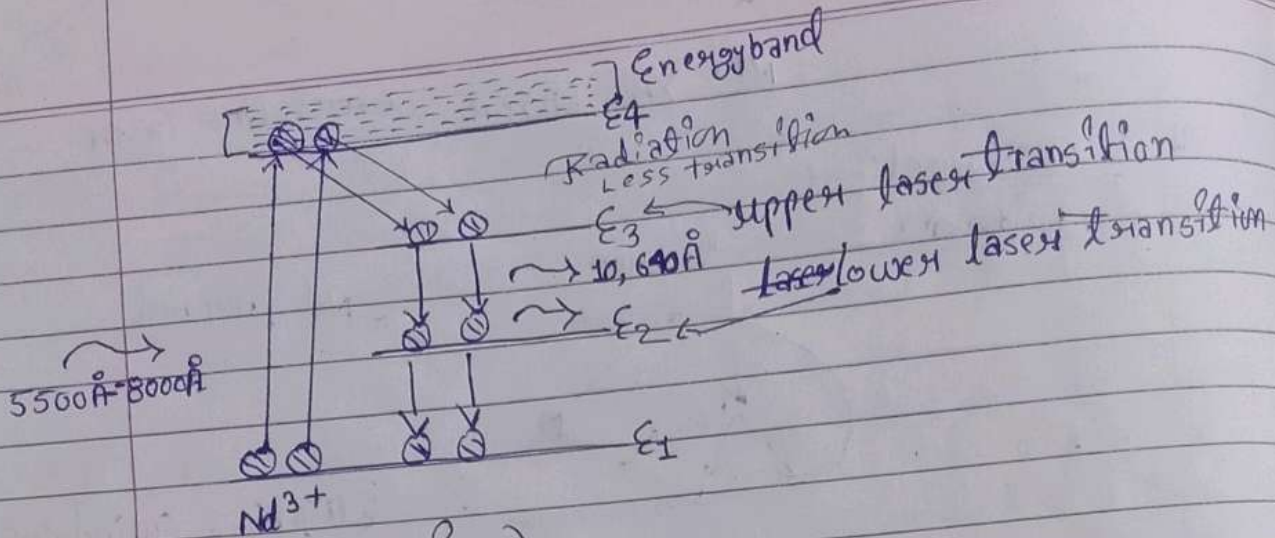 Energyband
E4
Radiation
Less transition
E3 upper laser transition
10,640Å
lower laser transition
E2
5500Å-8000Å
E1
Nd3+